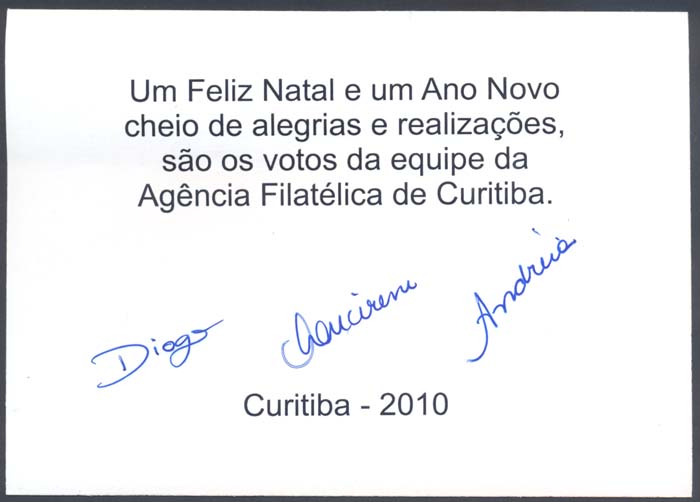 Um Feliz Natal e um Ano Novo
cheio de alegrias e realizações,
são os votos da equipe da
Agência Filatélica de Curitiba.
Diogo
Andréia
Curitiba - 2010